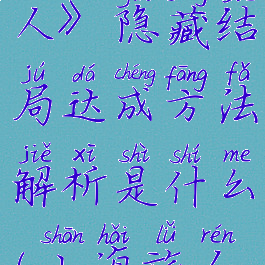 人》隐藏结
jú dá chéng fāng fǎ
局达成方法
jiě xī shì shí me
解析是什么
shān hǎi lǚ rén